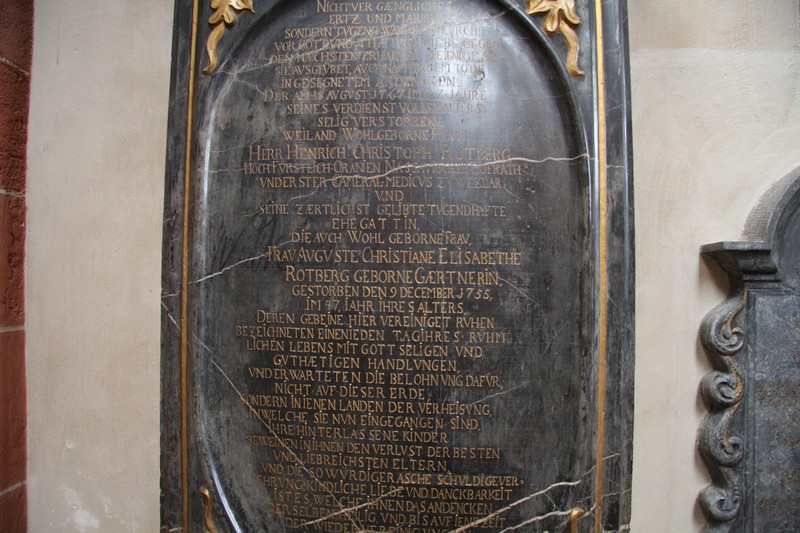 NICHT VERGÆNGLICHES
ERTZ UND MARMOR
SONDERN TUGEND
VOR GOTT UND
DEM NÆCHSTEN
SIE AUSGEUBET, AUCH NACH DEM TODE
IN GESEGNETEM ANDENCKEN.
DER AM AUGUST JAHRE
SEINES VERDIENST VOLLEN ALTERS
SELIG VERSTORBENE
WEILAND WOHLGEBORNE HERR
HERR HENRICH CHRISTOPH ROTBERG
HOCHFÜRSTLICH ORANIEN NASSAU HOFRATH
UND ERSTER CAMERAL MEDICUS ZU WEZLAR,
UND
SEINE ZÆRTLICHST GELIBTE TUGENDHAFTE
EHEGATTIN,
DIE AUCH WOHL GEBORNE FRAU,
FRAU AUGUSTE CHRISTIANE ELISABETHE
ROTBERG GEBORNE GÆRTNERIN,
GESTORBEN DEN 9 DECEMBER J755,
IM 47 IAHR IHRES ALTERS.
DEREN GEBEINE HIER VEREINIGET RUHEN
BEZEICHNETEN EINEN IEDEN TAG IHRES RUHM
LICHEN LEBENS MIT GOTT SELIGEN UND
GUTHÆTIGEN HANDLUNGEN,
UND ERWARTETEN DIE BELOHNUNG DAFUR,
NICHT AUF DIESER ERDE,
SONDERN IN IENEN LANDEN DER VERHEISUNG,
IN WELCHE SIE NUN EINGEGANGEN SIND,
IHRE HINTERLASSENE KINDER
BEWEINEN IN IHNEN DEN VERLUST DER BESTEN
UND LIEBREICHSTEN ELTERN
UND DIE SO WURDIGER ASCHE SCHULDIGE VER=
EHRUNG KINDLICHE LIEBE UND DANCKBARKEIT
IST ES, WELCHE IHNEN DAS ANDENCKEN
DERSELBEN HEILIG, UND BIS AUF IENE ZEIT
DER WIEDER VEREINIGUNG